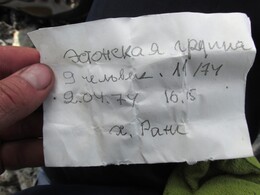 Эстонская группа
9 человек. 11/74
9.04.74 16.15
х. Ранг